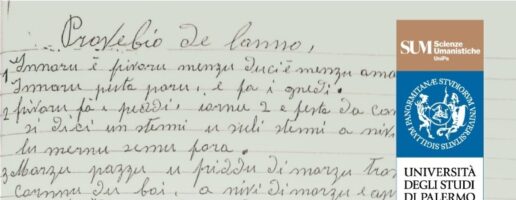 Provebio de lanno,
1 Innaru è fivaru menzu duci è menzu ama
Innaru pista paru, e fa i gredi.
2 fivaru fa i piedi iornu 2 e festa da can
si dici un stemi u suli stemi a nivi
lu mernu semu fora.
3 Marzu pazzu u friddu di marzu tra
cornna du boi, a nivi di marzu e
SUM Scienze
Umanistiche
UniPa
SICVLVM PANORMITANAE STVDIORVM VNIVERSITATIS SIGILLVM
UNIVERSITÀ
DEGLI STUDI
DI PALERMO